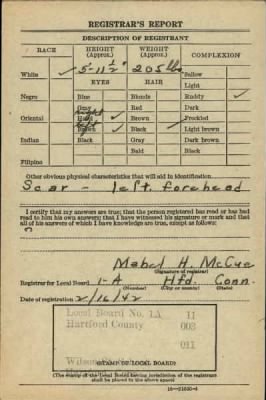 REGISTRAR'S REPORT
DESCRIPTION OF REGISTRANT
RACE HEIGHT (Approx.) WEIGHT (Approx.) COMPLEXION
White ✓ 5-11½" 205 lbs Sallow
EYES HAIR Light
Negro Blue Blonde Ruddy ✓
Gray Red Dark
Oriental Hazel ✓ Brown Freckled
Brown ✓ Black ✓ Light brown
Indian Black Gray Dark brown
Bald Black
Filipino
Other obvious physical characteristics that will aid in identification
Scar - left forehead
I certify that my answers are true; that the person registered has read or has had
read to him his own answers; that I have witnessed his signature or mark and that
all of his answers of which I have knowledge are true, except as follows:
Mabel H. McCue
(Signature of registrar)
Registrar for Local Board 1-A Hfd. Conn.
(Number) (City or county) (State)
Date of registration 2/16/42
Local Board No. 1A 11
Hartford County 003
011
(STAMP OF LOCAL BOARD)
(The stamp of the Local Board having jurisdiction of the registrant
shall be placed in the above space)